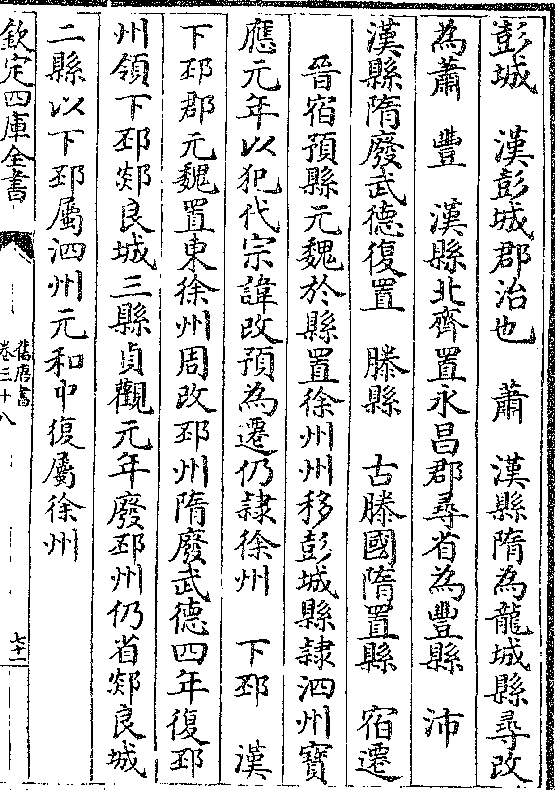 彭城　漢彭城郡治也　蕭　漢縣隋為龍城縣尋改
為蕭　豐　漢縣北齊置永昌郡尋省為豐縣　沛
漢縣隋廢武德復置　滕縣　古滕國隋置縣　宿遷
晉宿預縣元魏於縣置徐州州移彭城縣隷泗州寶
應元年以犯代宗諱改預為遷仍隷徐州　下邳　漢
下邳郡元魏置東徐州周改邳州隋廢武德四年復邳
州領下邳郯良城三縣貞觀元年廢邳州仍省郯良城
二縣以下邳屬泗州元和中復屬徐州
欽定四庫全書
舊唐書
卷三十八
七十二